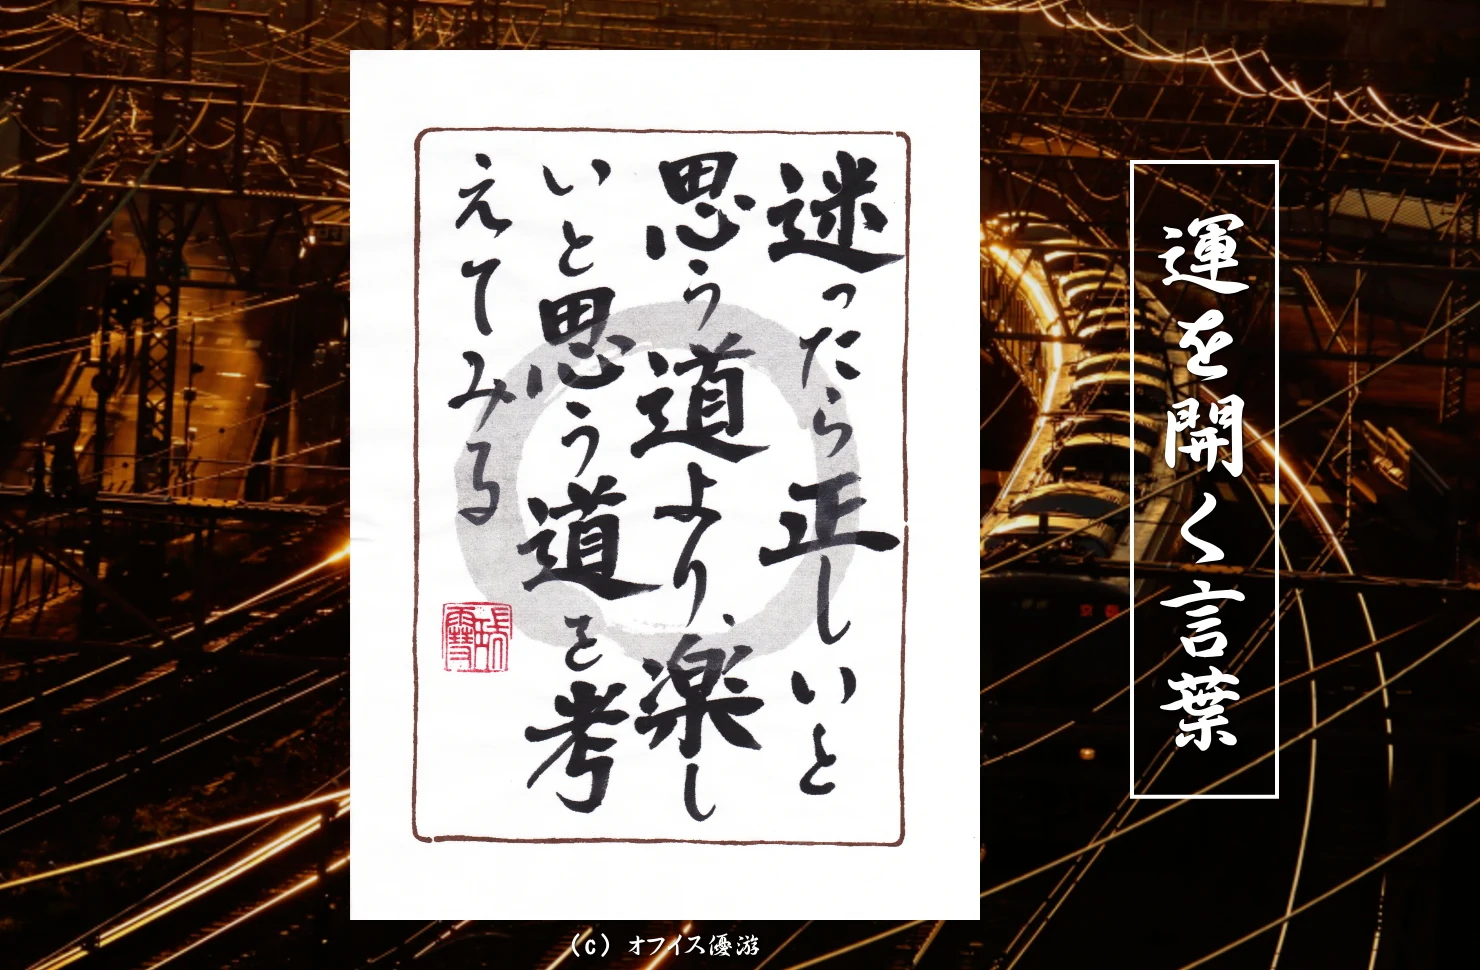 運を開く言葉
迷ったら正しいと
思う道より楽し
いと思う道を考
えてみる
(c) オフィス優游